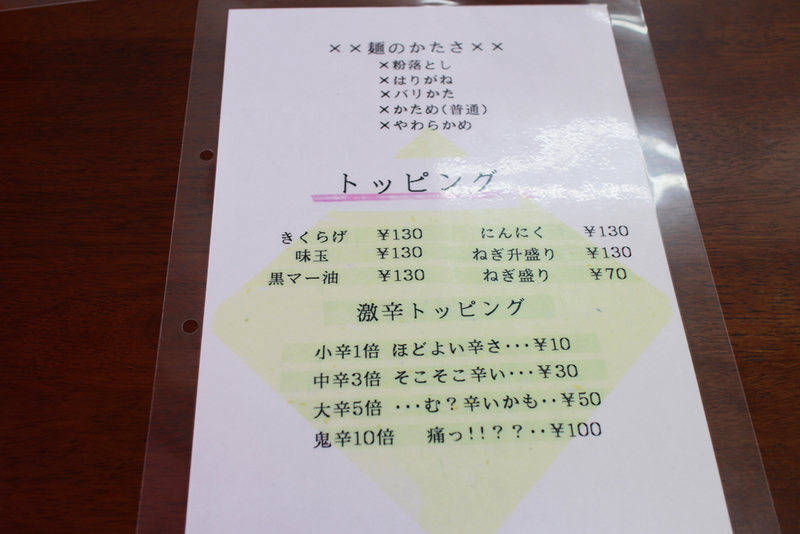 ××麺のかたさ××
×粉落とし
×はりがね
×バリかた
×かため(普通)
×やわらかめ
トッピング
きくらげ ¥130 にんにく ¥130
味玉 ¥130 ねぎ升盛り ¥130
黒マー油 ¥130 ねぎ盛り ¥70
激辛トッピング
小辛1倍 ほどよい辛さ･･･¥10
中辛3倍 そこそこ辛い･･･¥30
大辛5倍 ･･･む？辛いかも･･¥50
鬼辛10倍 痛っ!!??･･¥100